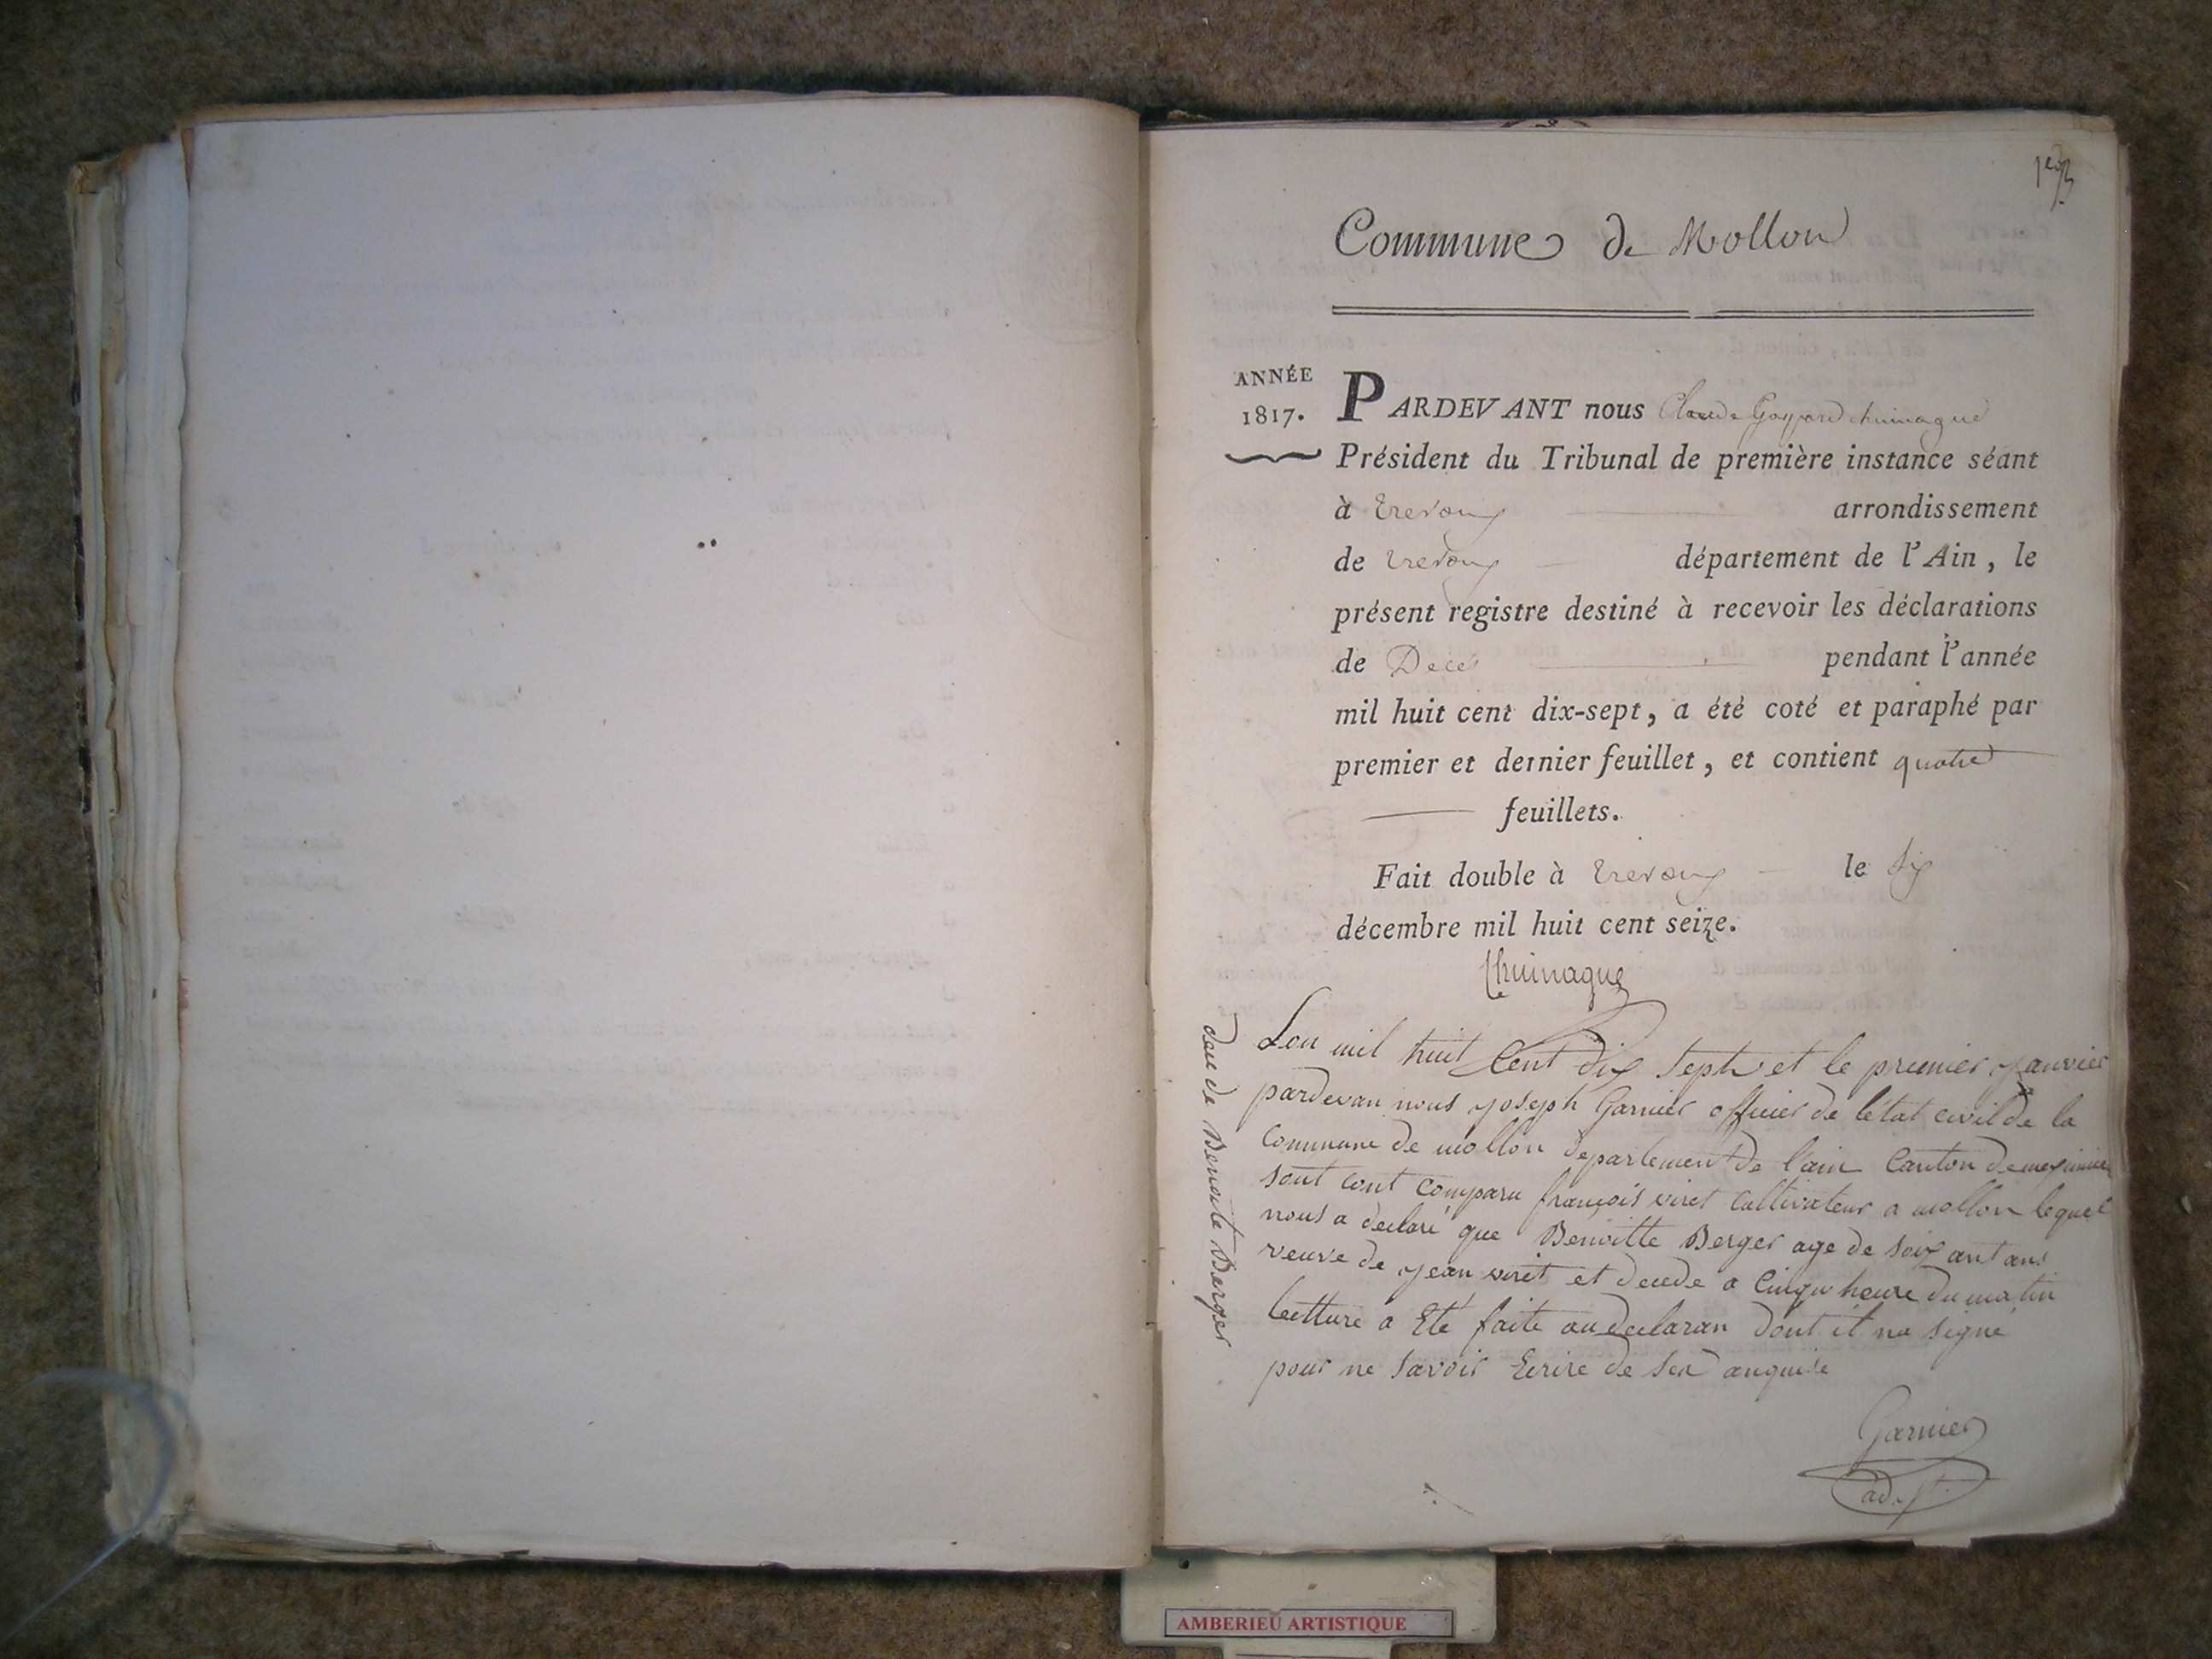 Commune de Mollon
ANNÉE
1817.
PARDEVANT nous Claude Gaspard Chuinague
Président du Tribunal de première instance séant
à Trevoux arrondissement
de Trevoux département de l'Ain, le
présent registre destiné à recevoir les déclarations
de Decès pendant l'année
mil huit cent dix-sept, a été coté et paraphé par
premier et dernier feuillet, et contient quatre
feuillets.
Fait double à Trevoux le Six
décembre mil huit cent seize.
Chuinague
Lou mil huit Cent dix Sept et le premier janvier
pardevan nous joseph Garnier officier de létat civil de la
Commune de mollon departement de l'ain Canton de meximieu
sont cont Comparu françois viret Cultivateur a mollon lequel
nous a declaré que Benoitte Berger age de soix ant ans
veuve de jean viret et decede a Cinqu heure du matin
lectture a Eté faite au declaran dont il na signé
pour ne savoir Ecrire de
de Benoite Berger
Garnier
adjt.
AMBERIEU ARTISTIQUE